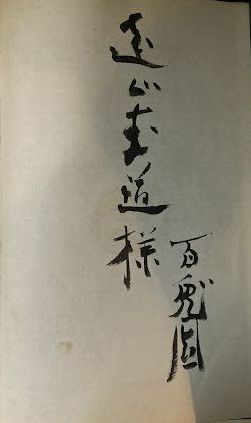 遠山道様
百鬼園